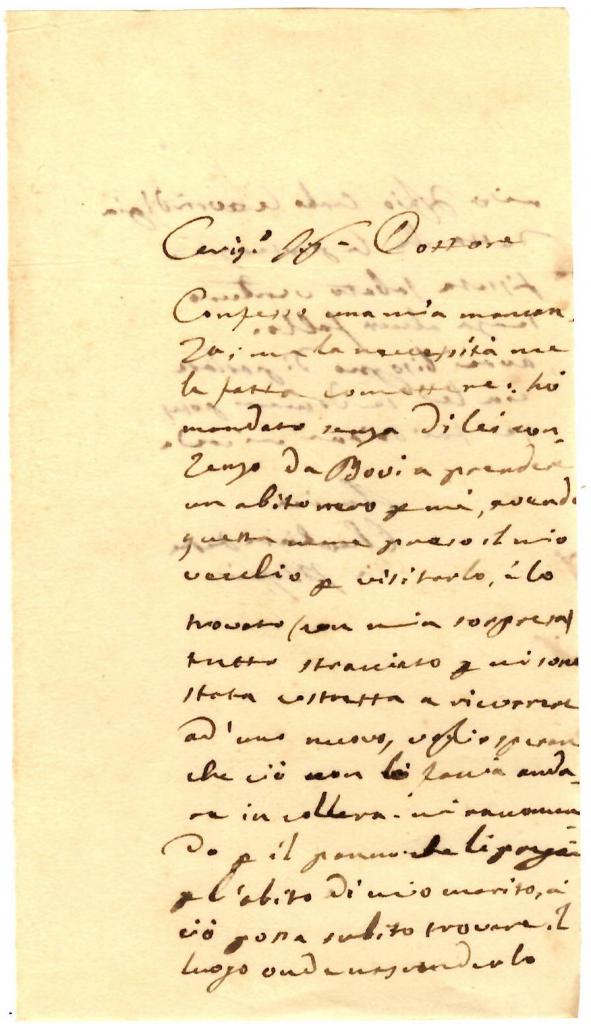 Carig.º Sig.r Dottore
Confesso una mia mancan-
za; ma la necessità me
la fatta comettere: hò
mandato senza di lei con-
senzo da Bovi a prendere
un abito nero p me, avendo
questa mane preso il mio
vecchio p visitarlo, è lo
trovato (con mia sorpresa)
tutto stracciato p mi sono
stata costretta a ricorrere
ad'uno nuovo, voglio sperare
che ciò non la faccia anda-
re in collera. mi raccoman
do p il panno che li pregai
p l'abito di mio marito, a
ciò possa subito trovare il
luogo onde nasconderlo